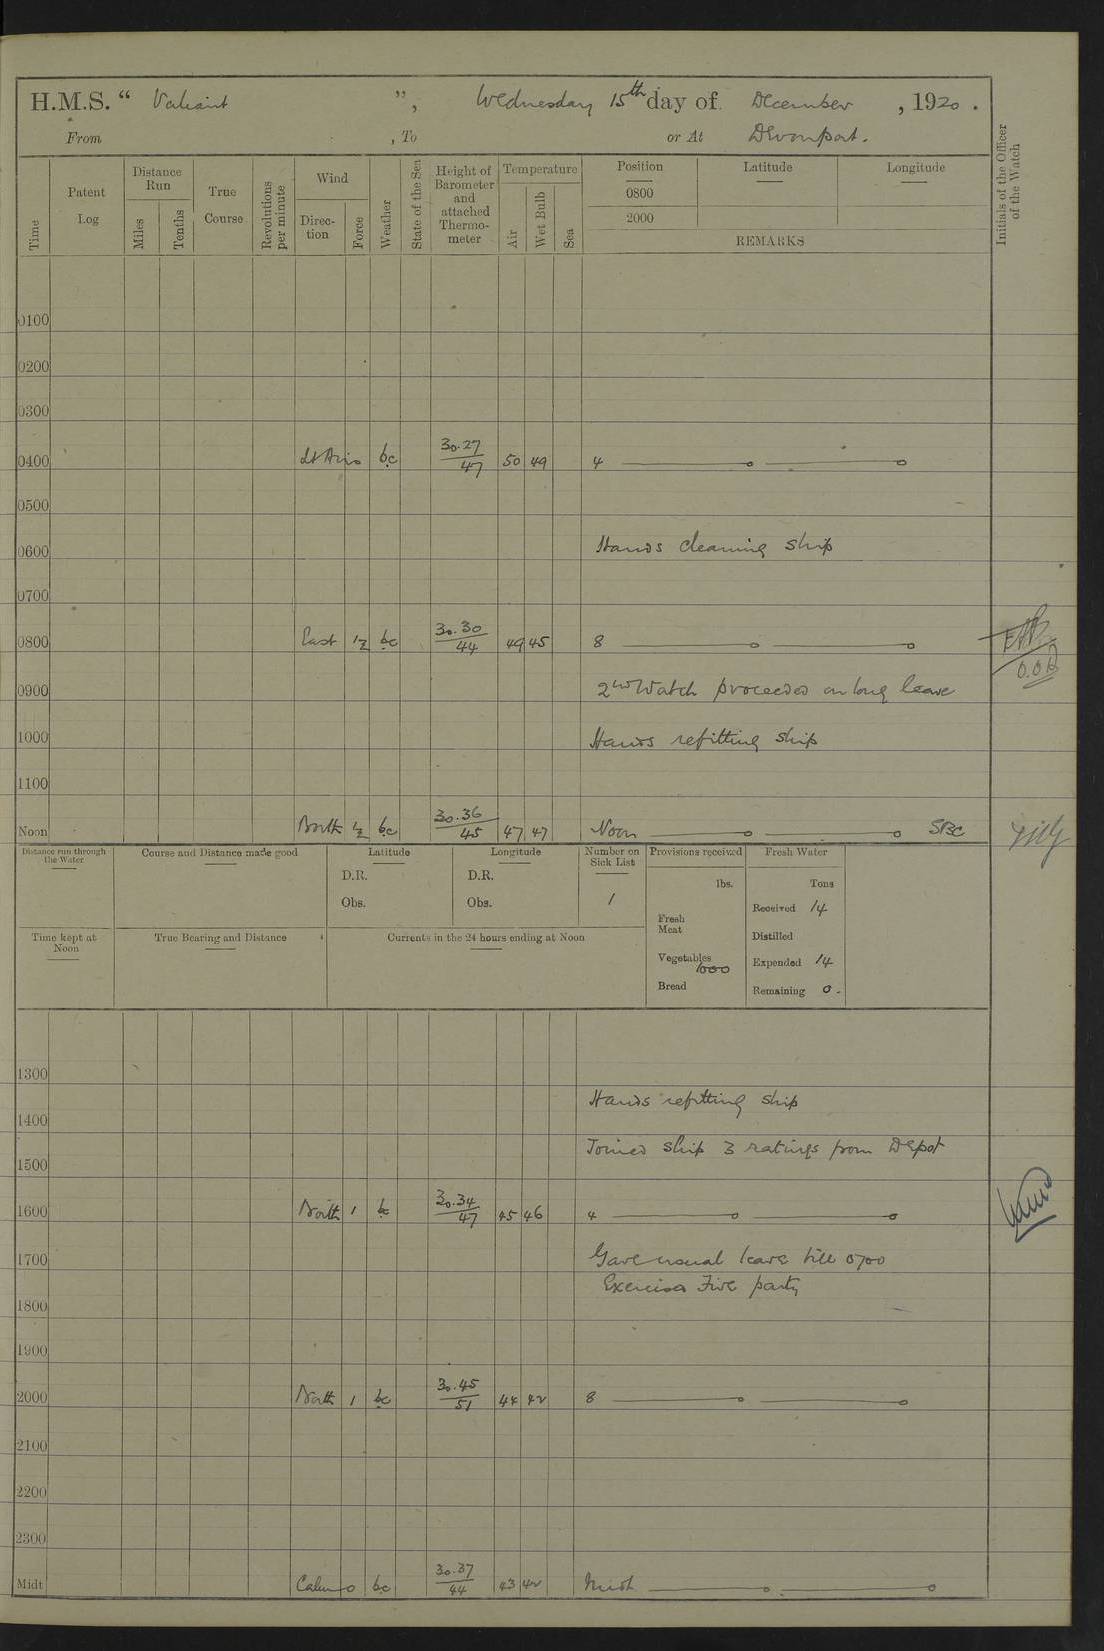 H.M.S. “ Valiant ”, Wednesday 15th day of December , 1920 .
From , To or At Devonport.
Time
Patent Log
Distance Run
Miles
Tenths
True Course
Revolutions per minute
Wind
Direction
Force
Weather
State of the Sea
Height of Barometer and attached Thermometer
Temperature
Air
Wet Bulb
Sea
Position
0800
2000
Latitude
Longitude
REMARKS
Initials of the Officer of the Watch
0100
0200
0300
0400 Lt Airs bc 30.27 47 50 49 4
0500
0600 Hands cleaning ship
0700
0800 East 1/2 bc 30.30 44 49 45 8
O.O.D
0900 2nd Watch proceeded on long leave
1000 Hands refitting ship
1100
Noon North 1/2 bc 30.36 45 47 47 Noon SBC
Distance run through the Water
Course and Distance made good
Latitude
D.R.
Obs.
Longitude
D.R.
Obs.
Number on Sick List
1
Provisions received
lbs.
Fresh Meat
Vegetables 1000
Bread
Fresh Water
Tons
Received 14
Distilled
Expended 14
Remaining 0 -
Time kept at Noon
True Bearing and Distance
Currents in the 24 hours ending at Noon
1300
1400 Hands refitting ship
1500 Joined ship 3 ratings from Depot
1600 North 1 bc 30.34 47 45 46 4
1700 Gave usual leave till 0700
Exercise Fire party
1800
1900
2000 North 1 bc 30.45 51 44 42 8
2100
2200
2300
Midt Calm 0 bc 30.37 44 43 42 Midt